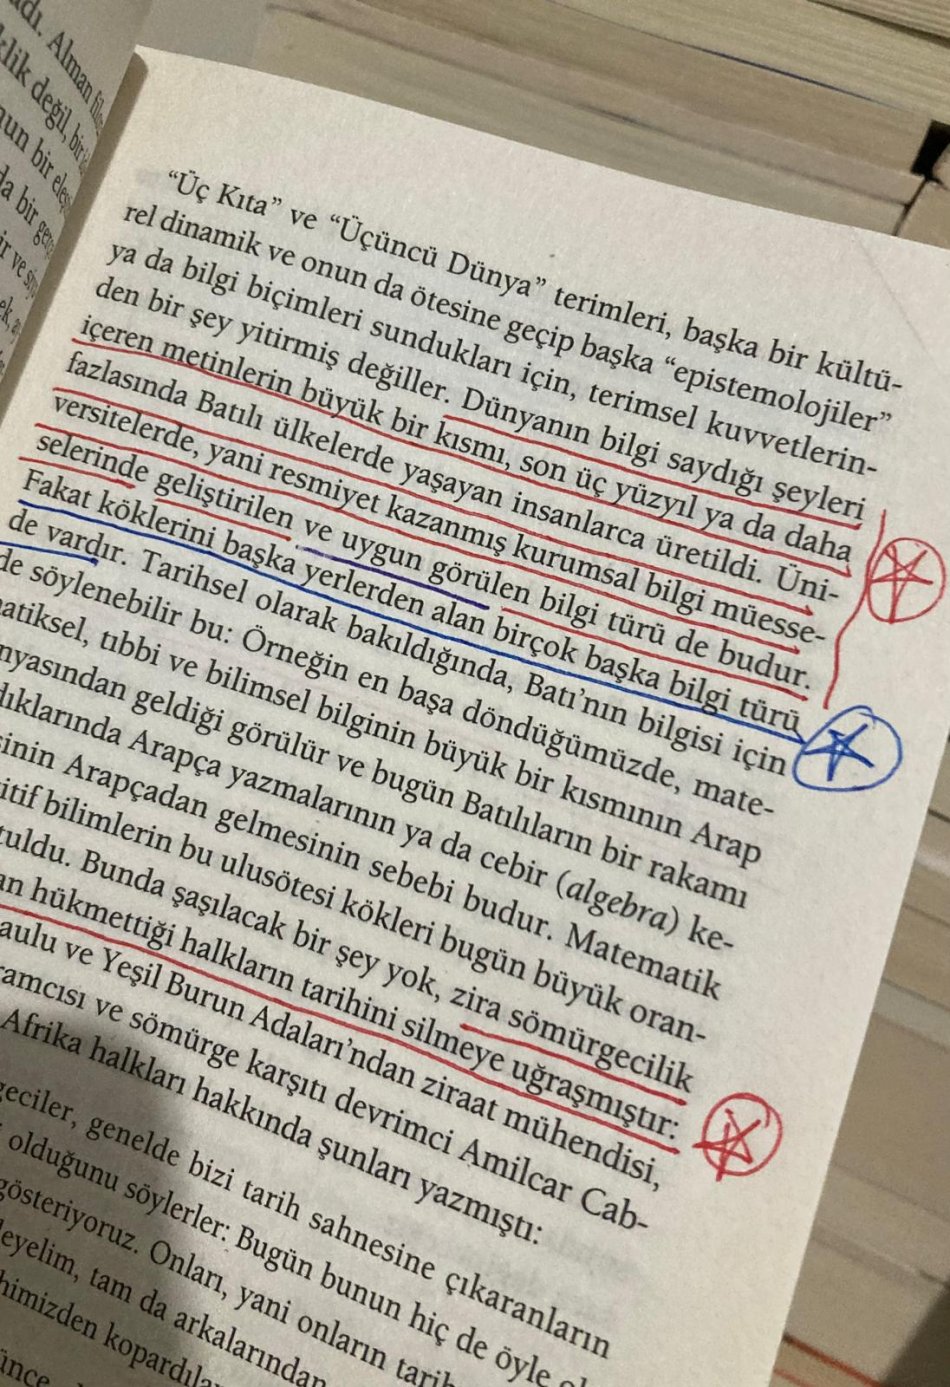 adı. Alman
klik değil, bir
bir eleş
da bir
ir ve
"Üç Kıta" ve "Üçüncü Dünya" terimleri, başka bir kültü-
rel dinamik ve onun da ötesine geçip başka "epistemolojiler"
ya da bilgi biçimleri sundukları için, terimsel kuvvetlerin-
den bir şey yitirmiş değiller. Dünyanın bilgi saydığı şeyleri
içeren metinlerin büyük bir kısmı, son üç yüzyıl ya da daha
fazlasında Batılı ülkelerde yaşayan insanlarca üretildi. Üni-
versitelerde, yani resmiyet kazanmış kurumsal bilgi müesse-
selerinde geliştirilen ve uygun görülen bilgi türü de budur.
Fakat köklerini başka yerlerden alan birçok başka bilgi türü
de vardır. Tarihsel olarak bakıldığında, Batı'nın bilgisi için
de söylenebilir bu: Örneğin en başa döndüğümüzde, mate-
matiksel, tıbbi ve bilimsel bilginin büyük bir kısmının Arap
nyasından geldiği görülür ve bugün Batılıların bir rakamı
dıklarında Arapça yazmalarının ya da cebir (algebra) ke-
sinin Arapçadan gelmesinin sebebi budur. Matematik
itif bilimlerin bu ulusötesi kökleri bugün büyük oran-
tuldu. Bunda şaşılacak bir şey yok, zira sömürgecilik
an hükmettiği halkların tarihini silmeye uğraşmıştır:
aulu ve Yeşil Burun Adaları'ndan ziraat mühendisi,
ramcısı ve sömürge karşıtı devrimci Amilcar Cab-
Afrika halkları hakkında şunları yazmıştı:
geciler, genelde bizi tarih sahnesine çıkaranların
olduğunu söylerler: Bugün bunun hiç de öyle
gösteriyoruz. Onları, yani onların tarih
leyelim, tam da arkalarından
himizden kopardılar
ünce